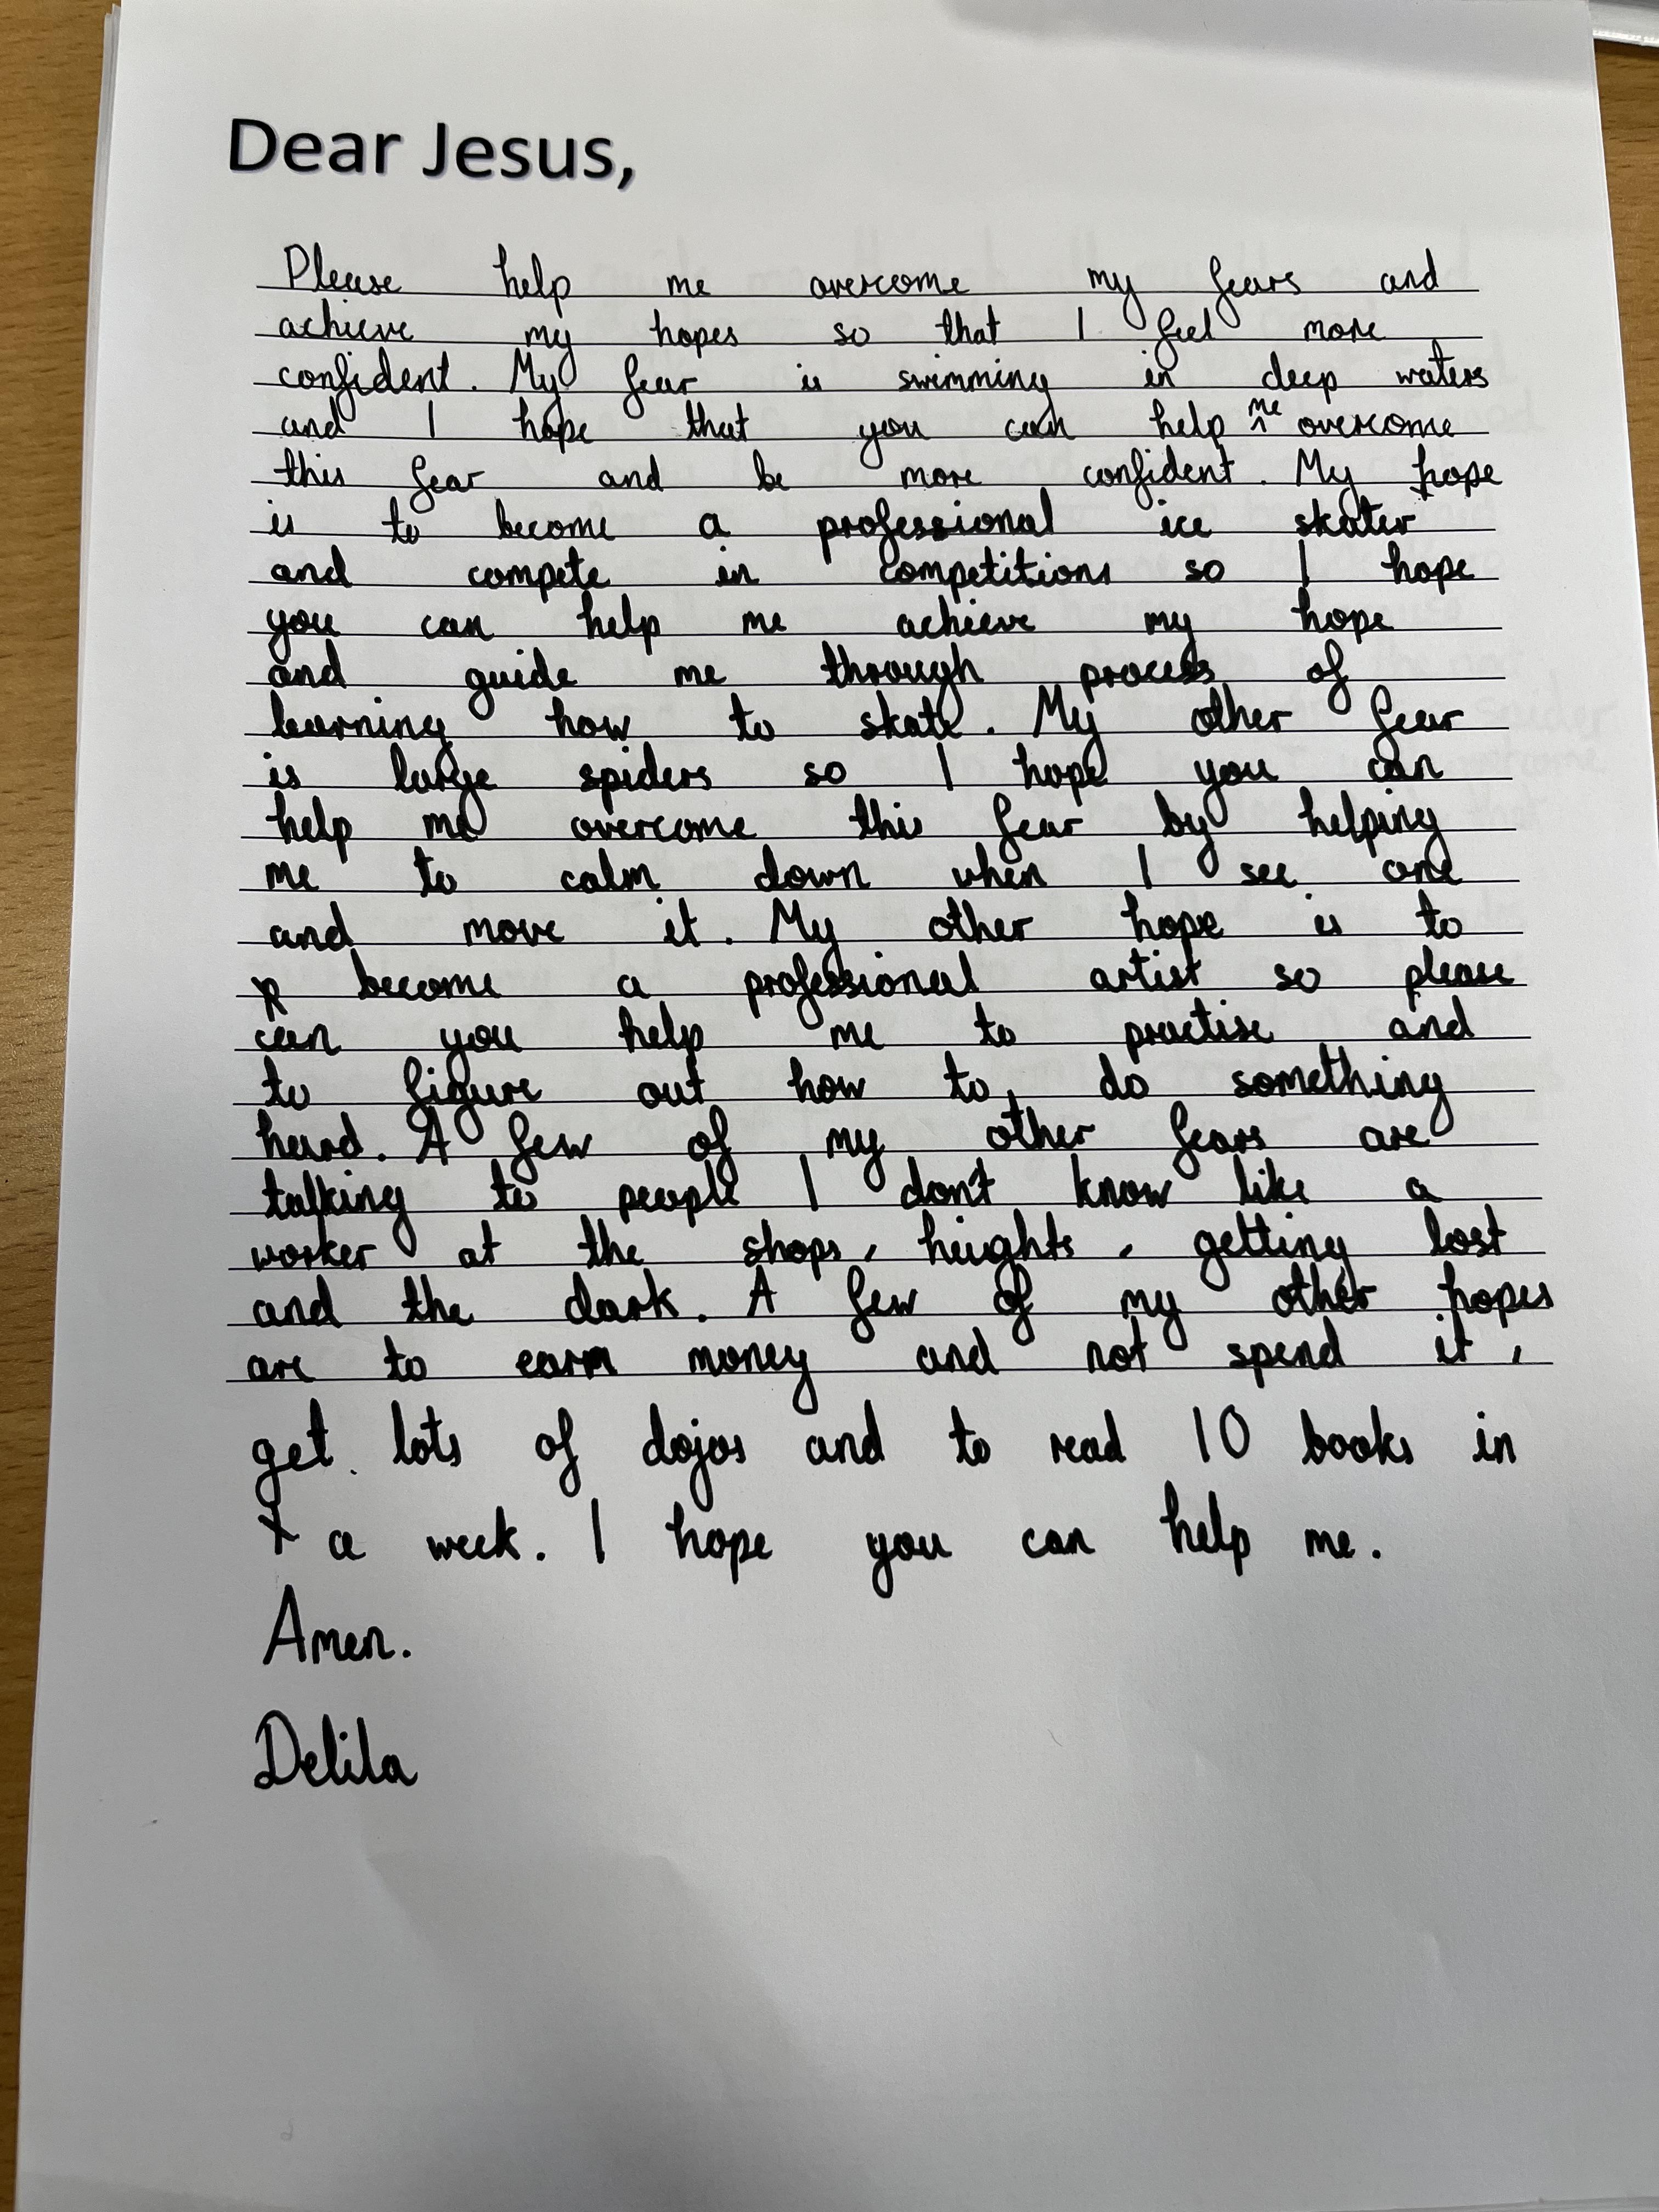 Dear Jesus,
Please help me overcome my fears and
achieve my hopes so that I feel more
confident. My fear is swimming in deep waters
and I hope that you can help me overcome
this fear and be more confident. My hope
is to become a professional ice skater
and compete in competitions so I hope
you can help me achieve my hope
and guide me through process of
learning how to skate. My other fear
is large spiders so I hope you can
help me overcome this fear by helping
me to calm down when I see one
and move it. My other hope is to
become a professional artist so please
can you help me to practise and
to figure out how to do something
hard. A few of my other fears are
talking to people I don't know like a
worker at the shops, heights, getting lost
and the dark. A few of my other hopes
are to earn money and not spend it,
get lots of dojos and to read 10 books in
a week. I hope you can help me.
Amen.
Delila